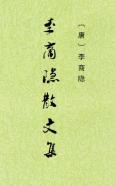 〔唐〕李商隐
李商隐散文集